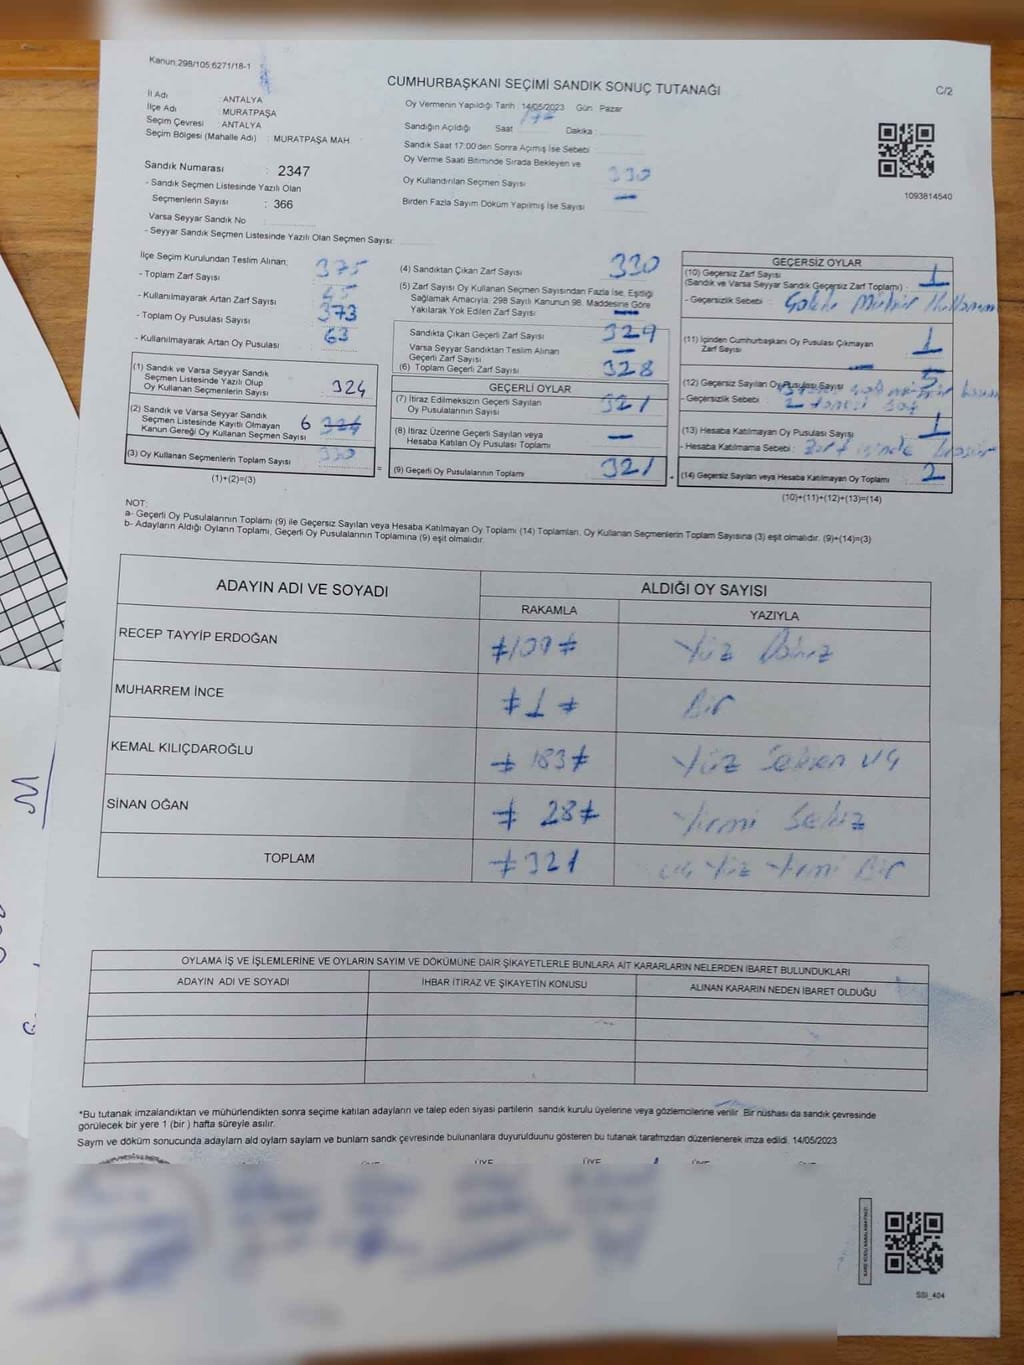 Kanun:298/105:6271/18-1
CUMHURBAŞKANI SEÇİMİ SANDIK SONUÇ TUTANAĞI
C/2
İl Adı : ANTALYA
İlçe Adı : MURATPAŞA
Seçim Çevresi : ANTALYA
Seçim Bölgesi (Mahalle Adı) : MURATPAŞA MAH
Sandık Numarası : 2347
- Sandık Seçmen Listesinde Yazılı Olan
Seçmenlerin Sayısı : 366
Varsa Seyyar Sandık No :
- Seyyar Sandık Seçmen Listesinde Yazılı Olan Seçmen Sayısı:
Oy Vermenin Yapıldığı Tarih 14/05/2023 Gün Pazar
Sandığın Açıldığı Saat Dakika :
Sandık Saat 17:00'den Sonra Açımış Ise Sebebi
Oy Verme Saati Bitiminde Sırada Bekleyen ve
Oy Kullandırılan Seçmen Sayısı 330
Birden Fazla Sayım Döküm Yapılmış Ise Sayısı —
1093814540
İlçe Seçim Kurulundan Teslim Alınan;
- Toplam Zarf Sayısı 375
- Kullanılmayarak Artan Zarf Sayısı 45
- Toplam Oy Pusulası Sayısı 373
- Kullanılmayarak Artan Oy Pusulası 63
(1) Sandık ve Varsa Seyyar Sandık
Seçmen Listesinde Yazılı Olup
Oy Kullanan Seçmenlerin Sayısı 324
(2) Sandık ve Varsa Seyyar Sandık
Seçmen Listesinde Kayıtlı Olmayan
Kanun Gereği Oy Kullanan Seçmen Sayısı 6 324
(3) Oy Kullanan Seçmenlerin Toplam Sayısı 330
(1)+(2)=(3)
(4) Sandıktan Çıkan Zarf Sayısı 330
(5) Zarf Sayısı Oy Kullanan Seçmen Sayısından Fazla İse, Eşitliği
Sağlamak Amacıyla, 298 Sayılı Kanunun 98. Maddesine Göre
Yakılarak Yok Edilen Zarf Sayısı —
Sandıkta Çıkan Geçerli Zarf Sayısı 329
Varsa Seyyar Sandıktan Teslim Alınan
Geçerli Zarf Sayısı —
(6) Toplam Geçerli Zarf Sayısı 328
GEÇERLİ OYLAR
(7) İtiraz Edilmeksizin Geçerli Sayılan
Oy Pusulalarının Sayısı 321
(8) İtiraz Üzerine Geçerli Sayılan veya
Hesaba Katılan Oy Pusulası Toplamı —
= (9) Geçerli Oy Pusulalarının Toplamı 321
GEÇERSİZ OYLAR
(10) Geçersiz Zarf Sayısı
(Sandık ve Varsa Seyyar Sandık Geçersiz Zarf Toplamı) : 1
- Geçersizlik Sebebi :
(11) İçinden Cumhurbaşkanı Oy Pusulası Çıkmayan
Zarf Sayısı 1
(12) Geçersiz Sayılan Oy Pusulası Sayısı 5
- Geçersizlik Sebebi
(13) Hesaba Katılmayan Oy Pusulası Sayısı 1
- Hesaba Katılmama Sebebi : Zarf içinde
+ (14) Geçersiz Sayılan veya Hesaba Katılmayan Oy Toplamı 2
(10)+(11)+(12)+(13)=(14)
NOT:
a- Geçerli Oy Pusulalarının Toplamı (9) ile Geçersiz Sayılan veya Hesaba Katılmayan Oy Toplamı (14) Toplamları, Oy Kullanan Seçmenlerin Toplam Sayısına (3) eşit olmalıdır. (9)+(14)=(3)
b- Adayların Aldığı Oyların Toplamı, Geçerli Oy Pusulalarının Toplamına (9) eşit olmalıdır.
ADAYIN ADI VE SOYADI ALDIĞI OY SAYISI
RAKAMLA YAZIYLA
RECEP TAYYİP ERDOĞAN ≠109≠ Yüz Dokuz
MUHARREM İNCE ≠1≠ Bir
KEMAL KILIÇDAROĞLU ≠183≠ Yüz Seksen üç
SİNAN OĞAN ≠28≠ Yirmi Sekiz
TOPLAM ≠321 üç Yüz Yirmi Bir
OYLAMA İŞ VE İŞLEMLERİNE VE OYLARIN SAYIM VE DÖKÜMÜNE DAİR ŞİKAYETLERLE BUNLARA AİT KARARLARIN NELERDEN İBARET BULUNDUKLARI
ADAYIN ADI VE SOYADI İHBAR İTİRAZ VE ŞİKAYETİN KONUSU ALINAN KARARIN NEDEN İBARET OLDUĞU
*Bu tutanak imzalandıktan ve mühürlendikten sonra seçime katılan adayların ve talep eden siyasi partilerin sandık kurulu üyelerine veya gözlemcilerine verilir. Bir nüshası da sandık çevresinde
görülecek bir yere 1 (bir ) hafta süreyle asılır.
Sayım ve döküm sonucunda adayların ald oyların sayların ve bunların sandk çevresinde bulunanlara duyurulduunu gösteren bu tutanak tarafmzdan düzenlenerek imza edildi. 14/05/2023
ÜYE ÜYE ÜYE ÜYE ÜYE
SSI_404